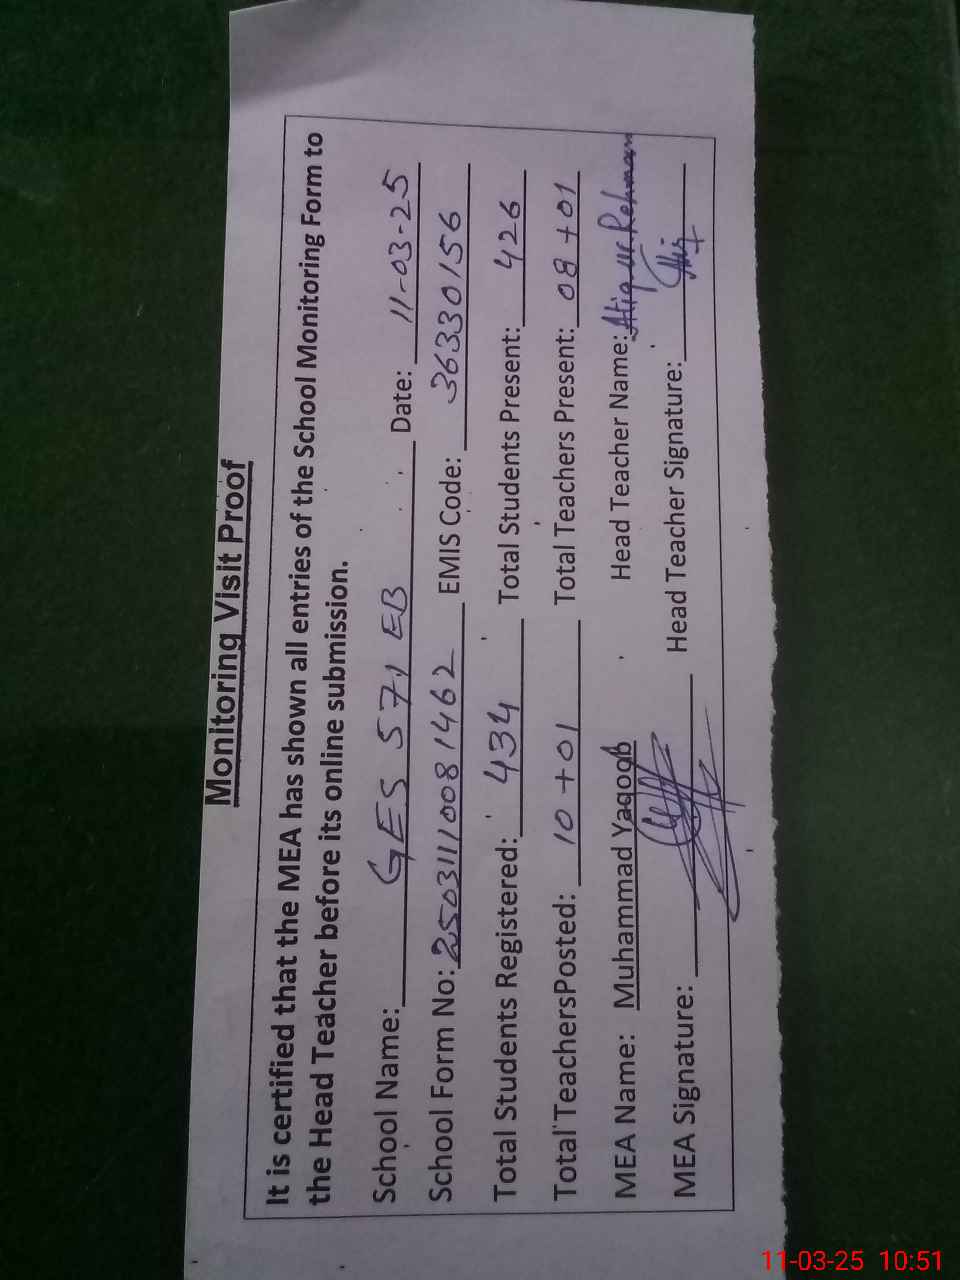 Monitoring Visit Proof
It is certified that the MEA has shown all entries of the School Monitoring Form to
the Head Teacher before its online submission.
School Name: GES 571 EB Date: 11-03-25
School Form No: 25031110081462 EMIS Code: 36330156
Total Students Registered: 434 Total Students Present: 426
Total TeachersPosted: 10 + 01 Total Teachers Present: 08 + 01
MEA Name: Muhammad Yaqoob Head Teacher Name: Atiq ur Rehman
MEA Signature: Head Teacher Signature:
11-03-25 10:51